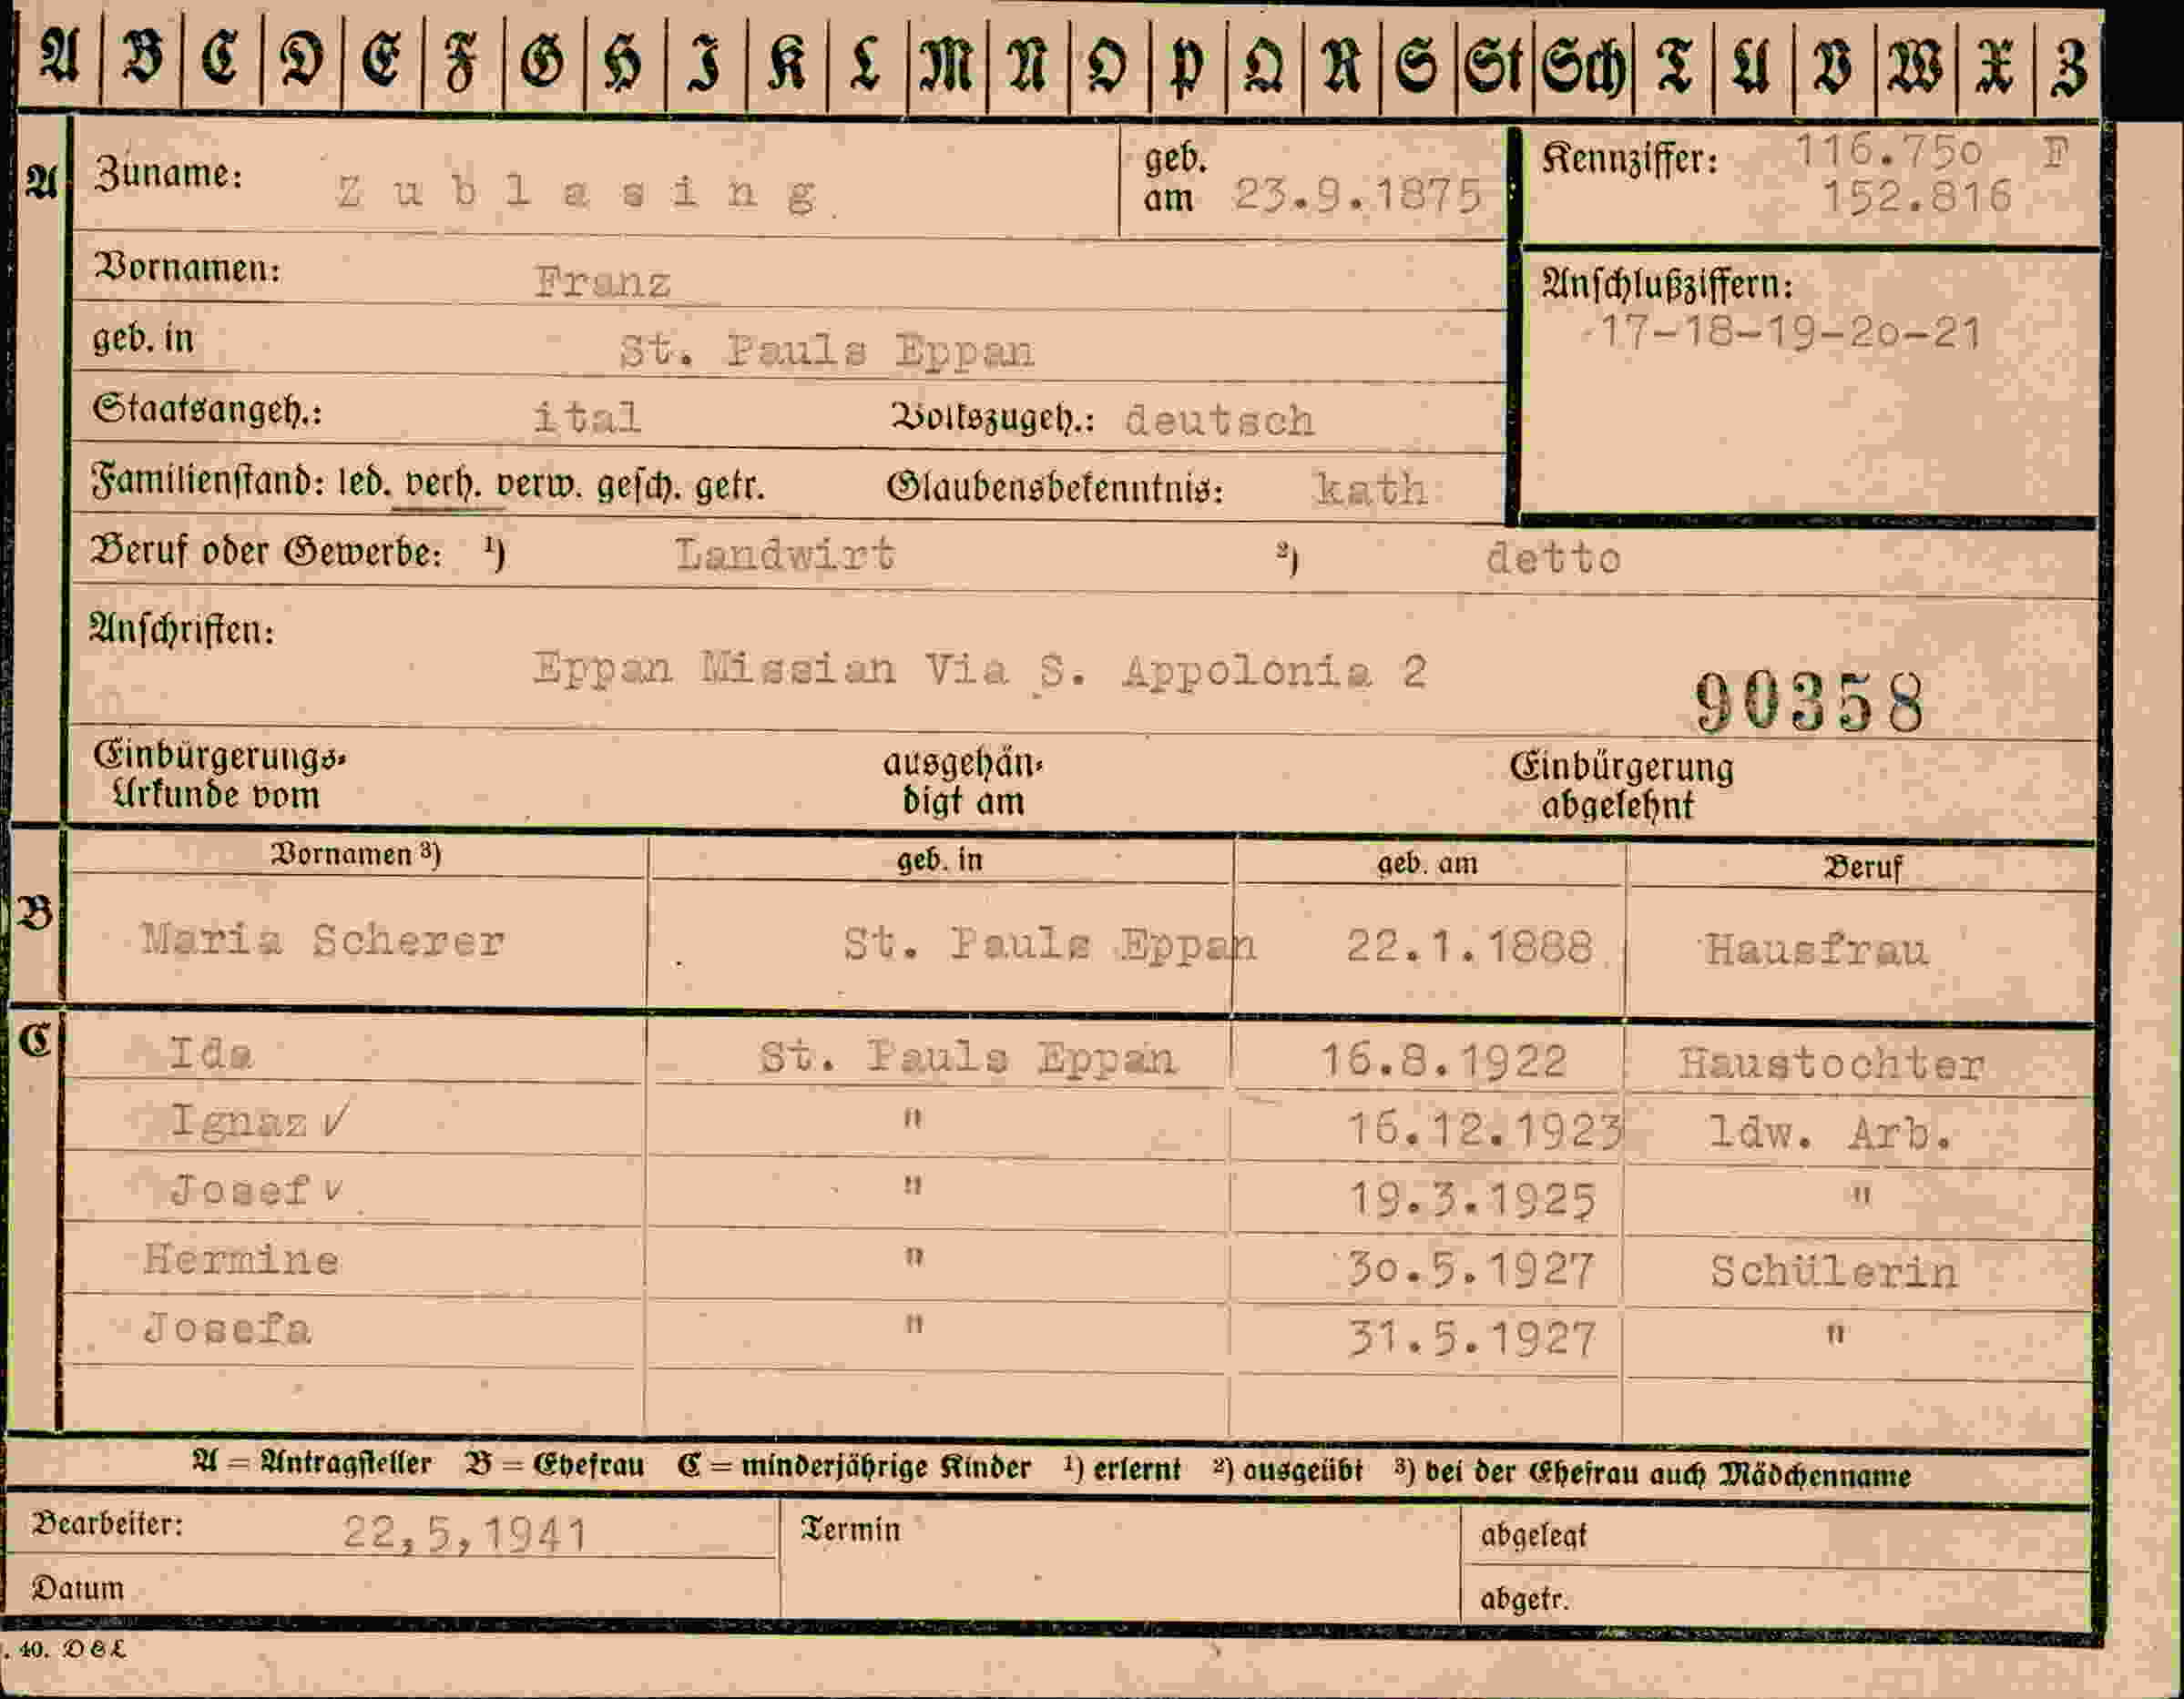 A B C D E F G H I K L M N O P Q R S St Sch T U V W X Z
A Zuname: Zublasing geb. am 23.9.1875 Kennziffer: 116.750 F
152.816
Vornamen: Franz Anschlußziffern:
geb. in St. Pauls Eppan 17-18-19-20-21
Staatsangeh.: ital Volkszugeh.: deutsch
Familienstand: led. verh. verw. gesch. getr. Glaubensbekenntnis: kath
Beruf oder Gewerbe: ¹) Landwirt ²) detto
Anschriften:
Eppan Missian Via S. Appolonia 2 90358
Einbürgerungs- ausgehän- Einbürgerung
Urkunde vom digt am abgelehnt
Vornamen ³) geb. in geb. am Beruf
B Maria Scherer St. Pauls Eppan 22.1.1888 Hausfrau
C Ida St. Pauls Eppan 16.8.1922 Haustochter
Ignaz ✓ " 16.12.1923 ldw. Arb.
Josef ✓ " 19.3.1925 "
Hermine " 30.5.1927 Schülerin
Josefa " 31.5.1927 "
A = Antragsteller B = Ehefrau C = minderjährige Kinder ¹) erlernt ²) ausgeübt ³) bei der Ehefrau auch Mädchenname
Bearbeiter: 22,5,1941 Termin abgelegt
Datum abgetr.
. 40. D&L